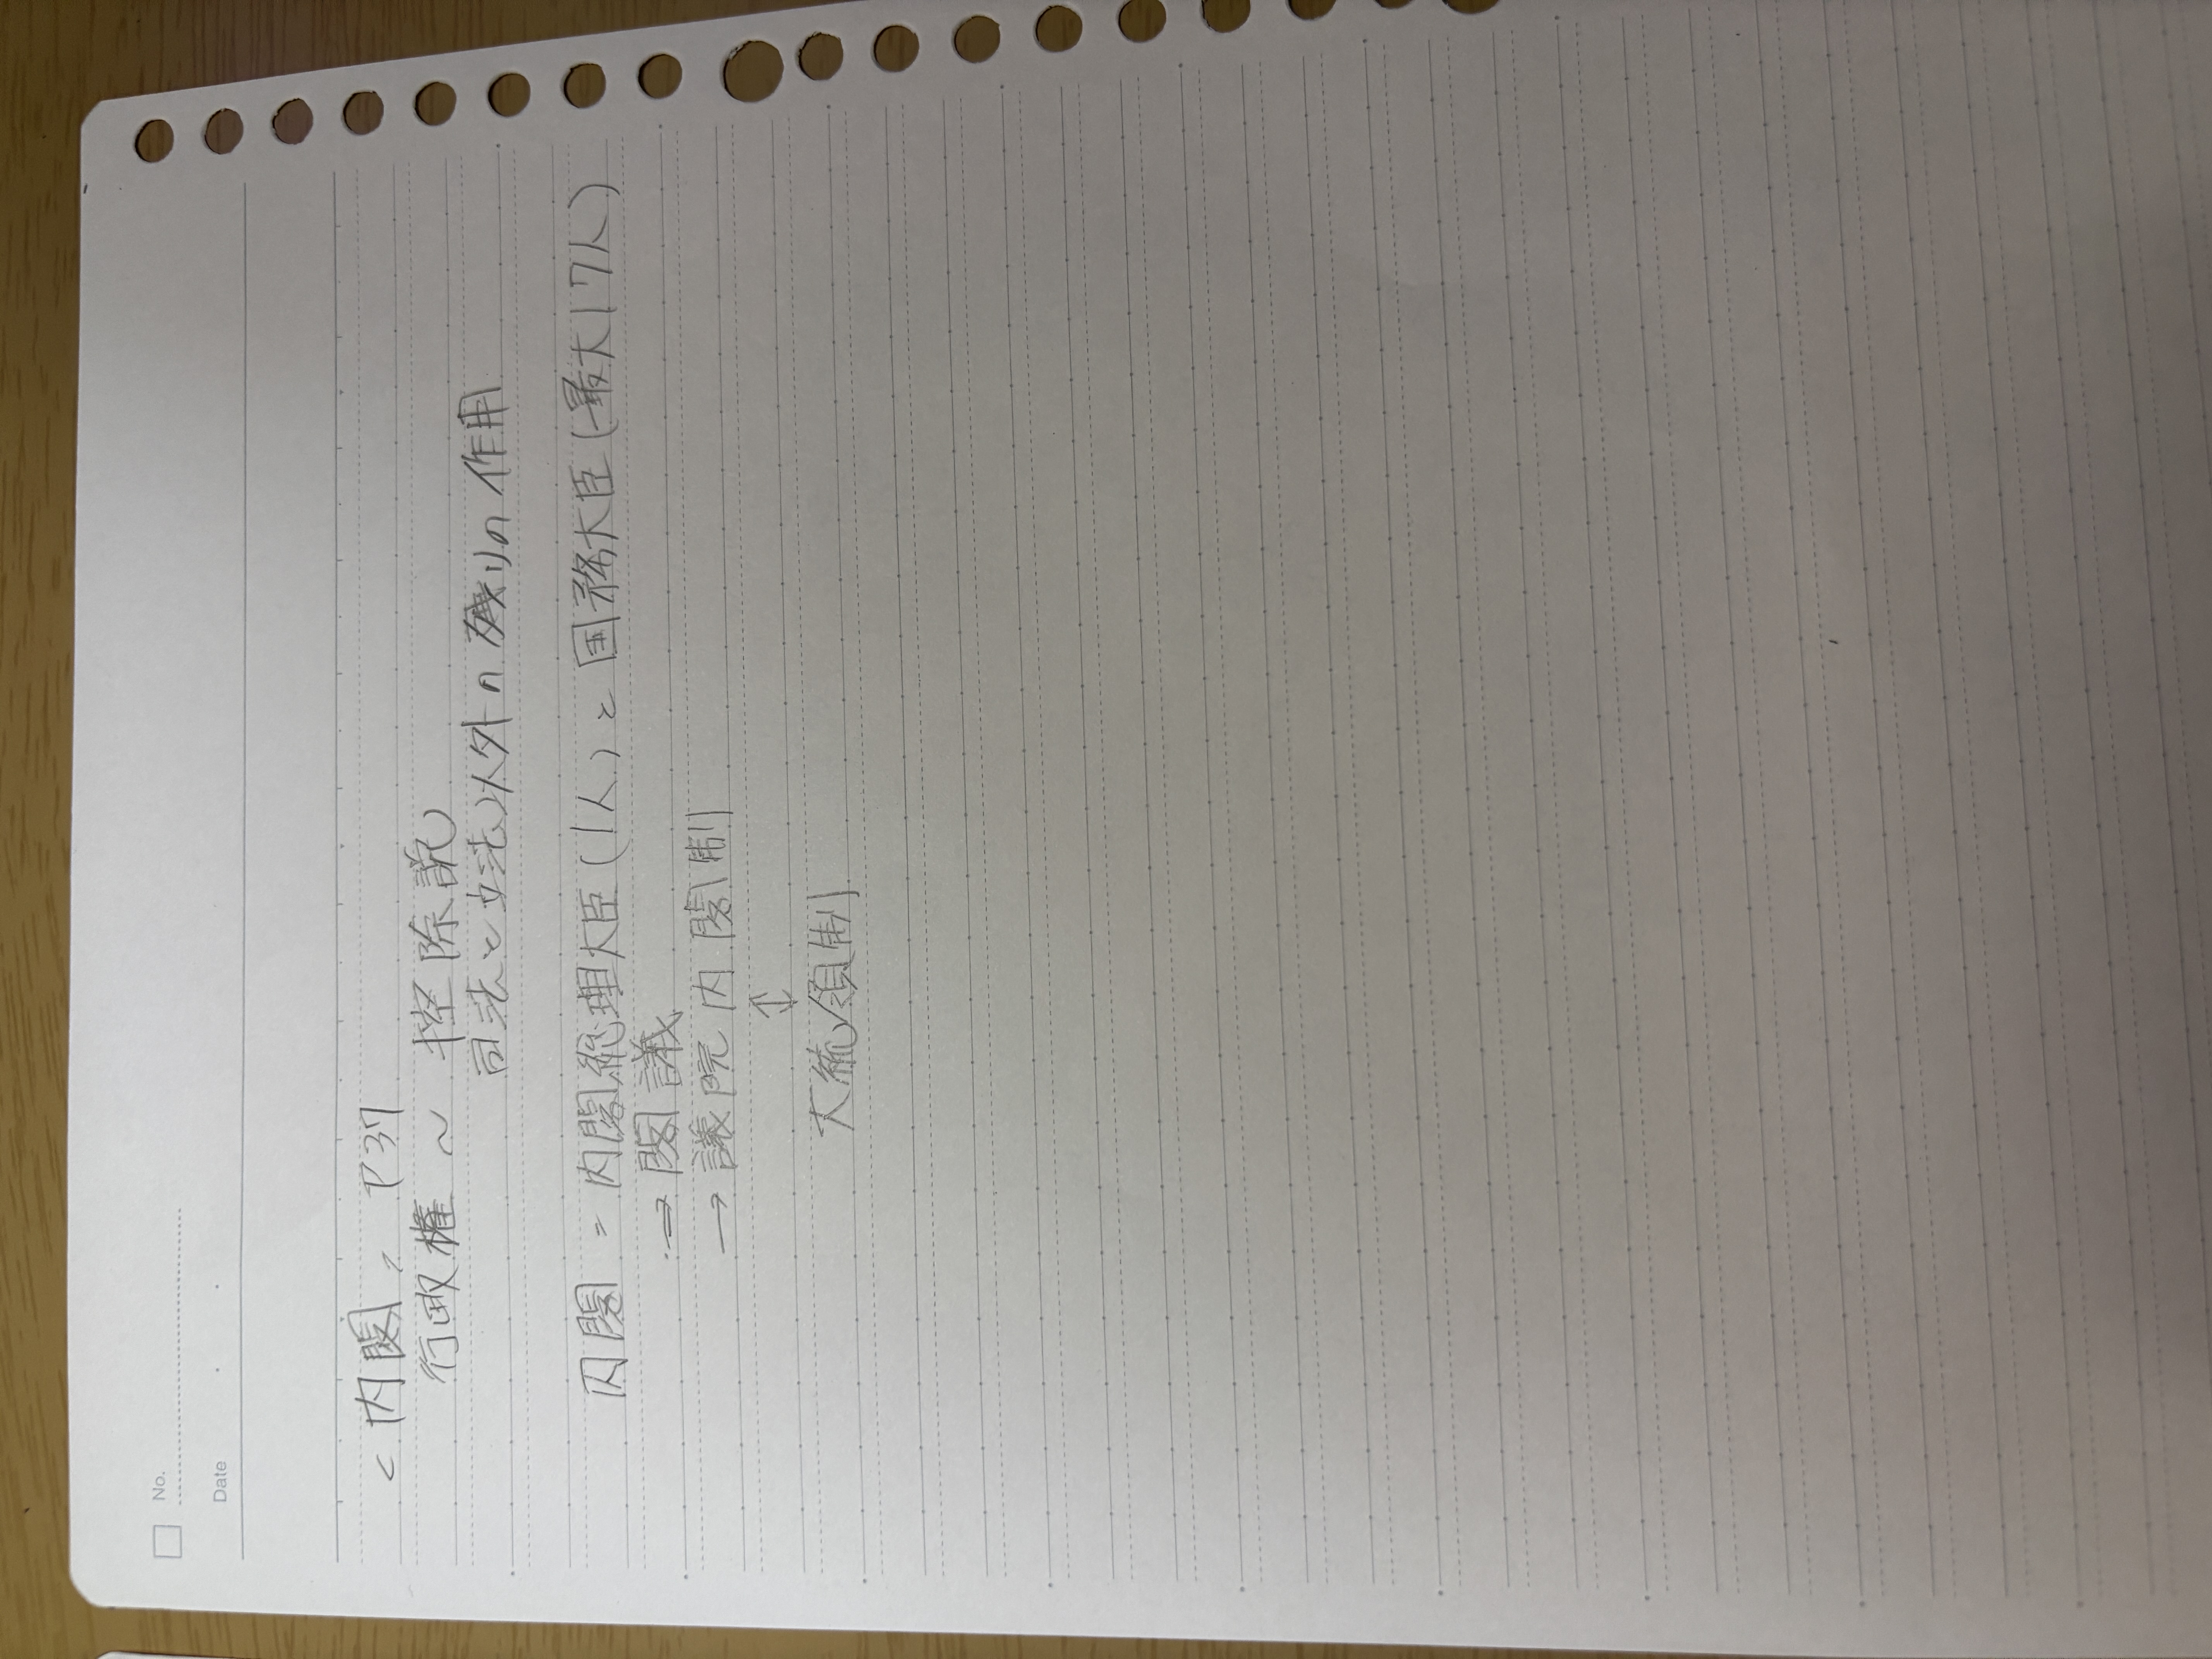 No.
Date
<内閣> P37
行政権 ~ 控除説
司法と立法以外の残りの作用
内閣 = 内閣総理大臣(1人)と国務大臣(最大17人)
→ 閣議
→ 議院内閣制
↕
大統領制